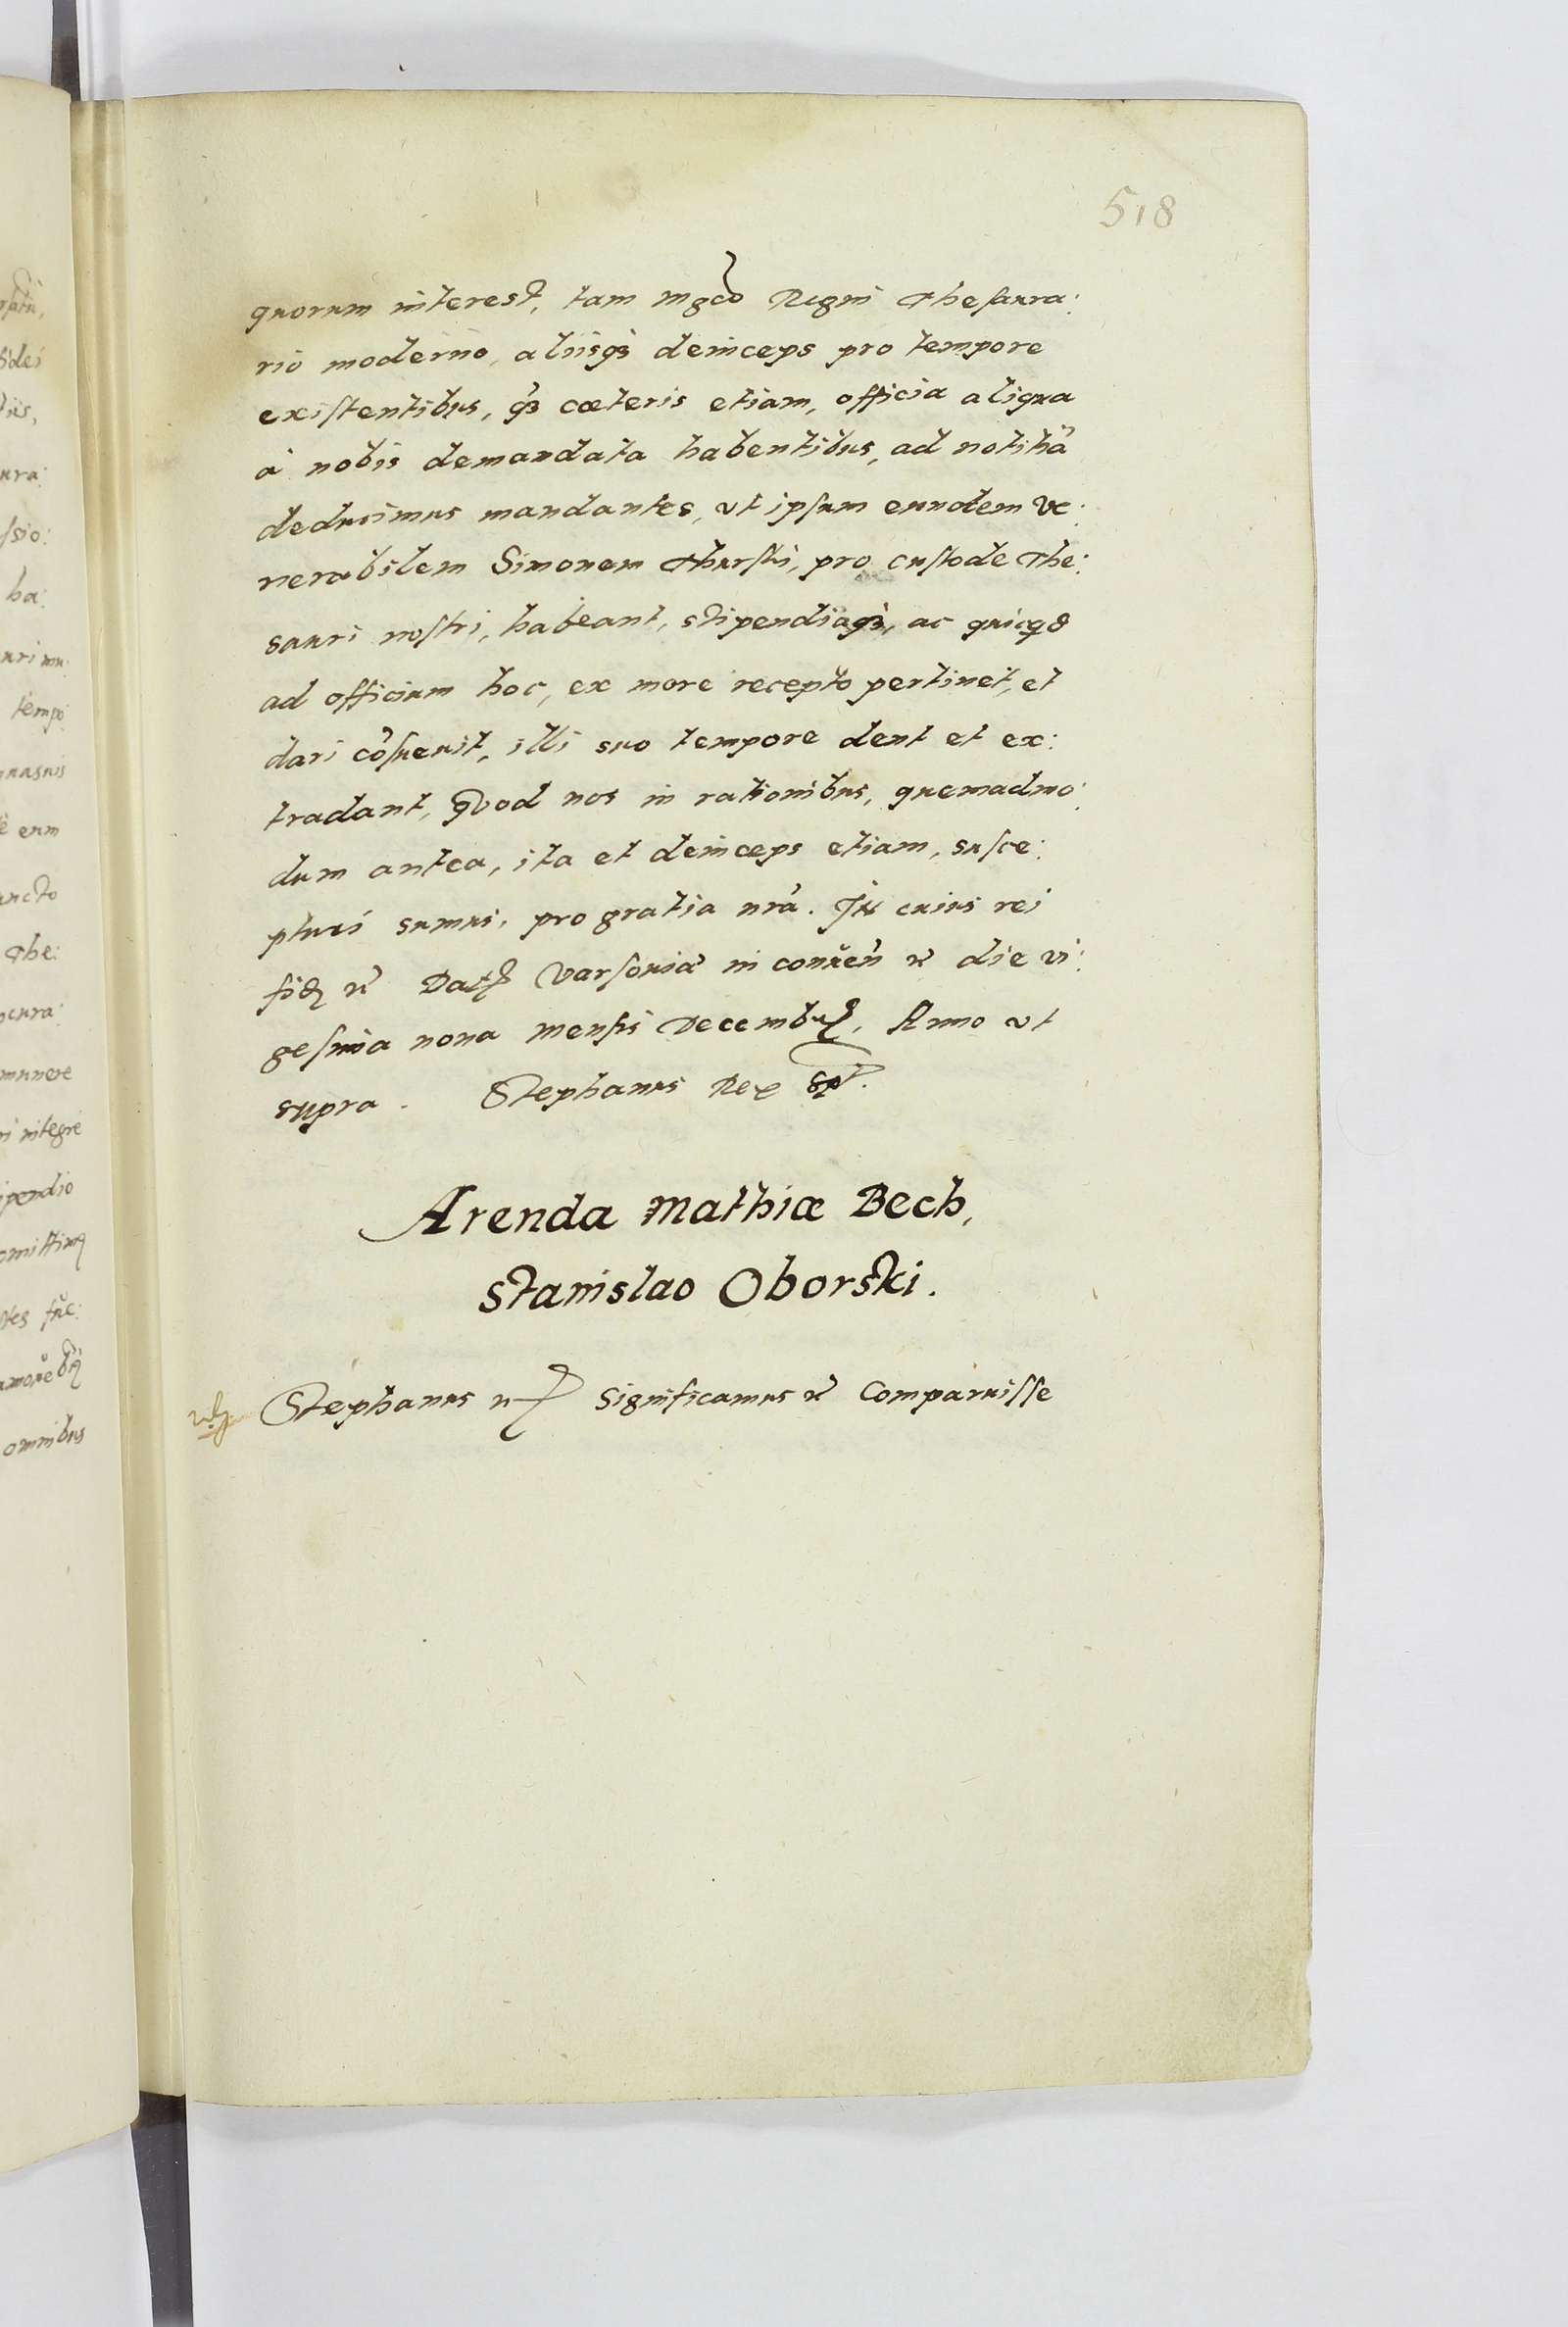 518
quorum interest, tam mgco Regni Thesaura:
rio moderno, aliisq3 deinceps pro tempore
existentibus, q3 cæteris etiam, officia aliqua
à nobis demandata habentibus, ad notitiã
deducimus mandantes, vt ipsum eundem Ve:
nerabilem Simonem Thurski, pro custode The:
sauri nostri, habeant, stipendiaq3, ac quicqd
ad officium hoc, ex more recepto pertinet, et
dari cõsueuit, illi suo tempore dent et ex:
tradant, Quod nos in rationibus, quemadmo:
dum antea, ita et deinceps etiam, susce:
pturi sumus, pro gratia nrã. In cuius rei
fidẽ Dat Varsouiæ in conuen die vi:
gesima nona mensis Decembr, Anno vt
supra. Stephanus Rex
Arenda Mathiæ Bech,
Stanislao Oborski.
Stephanus Significamus Comparuisse